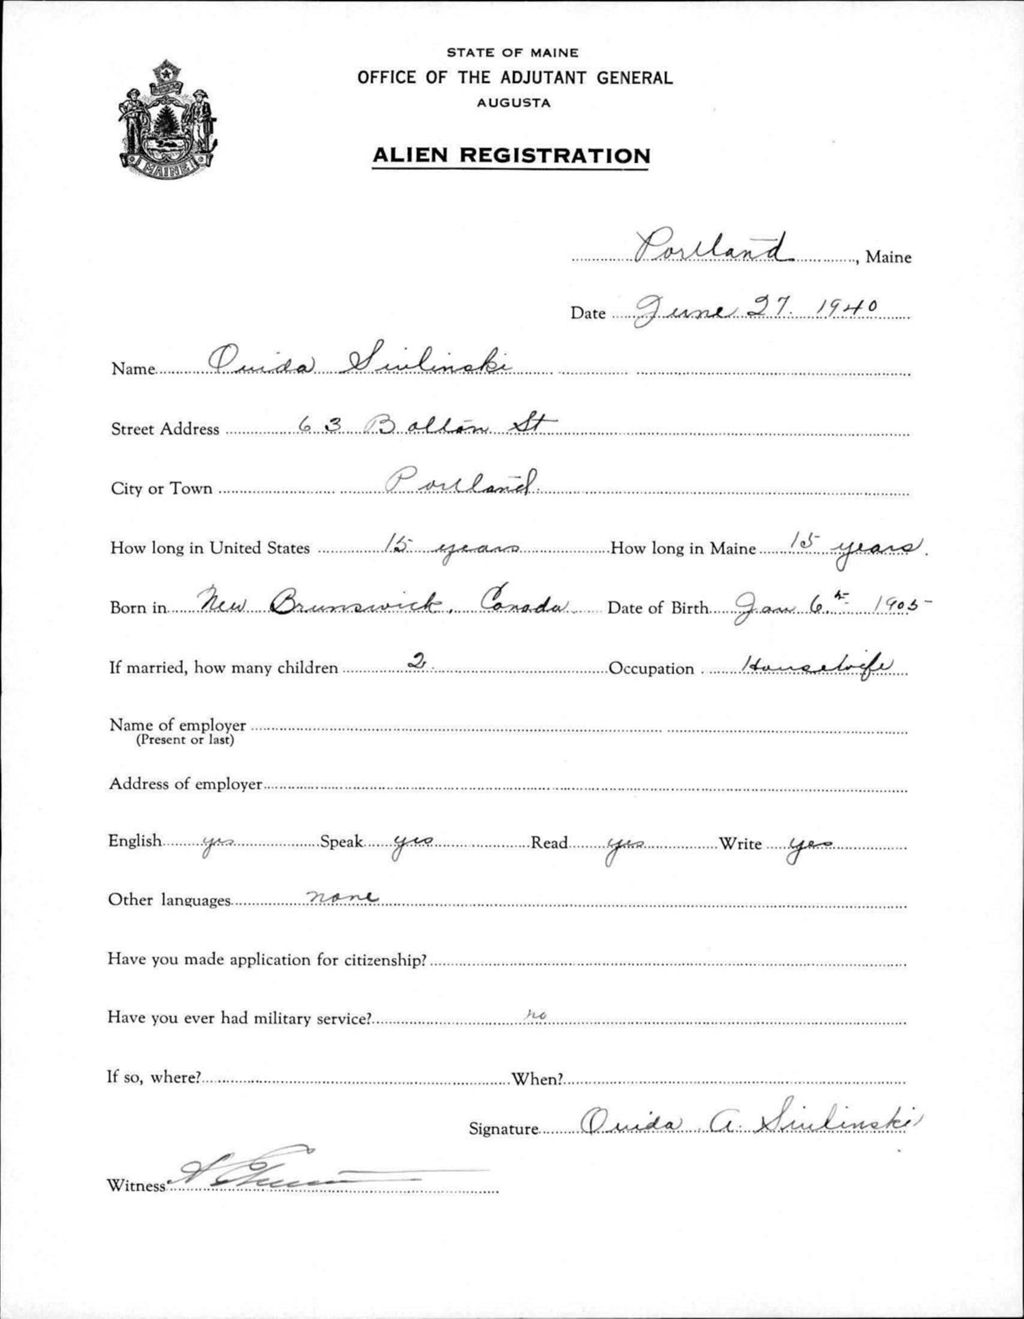 STATE OF MAINE
OFFICE OF THE ADJUTANT GENERAL
AUGUSTA
ALIEN REGISTRATION
MAINE
Portland, Maine
Date June 27. 1940
Name Ouida Siulinski
Street Address 63 Bolton St
City or Town Portland.
How long in United States 15 years How long in Maine 15 years.
Born in New Brunswick, Canada Date of Birth Jan 6. 1905
If married, how many children 2 Occupation Housewife
Name of employer
(Present or last)
Address of employer
English yes Speak yes Read yes Write yes
Other languages none
Have you made application for citizenship?
Have you ever had military service? no
If so, where? When?
Signature Ouida A. Siulinski
Witness